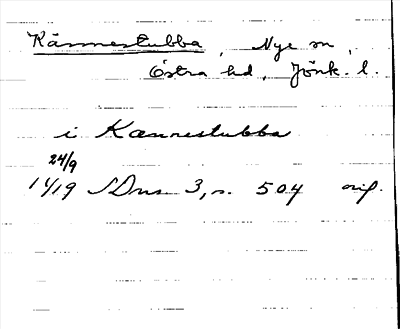 Kännestubba, Nye sn,
Östra hd, Jönk. l.
i Kannestubba
24/9
1419 SDns 3, s. 504 orig.